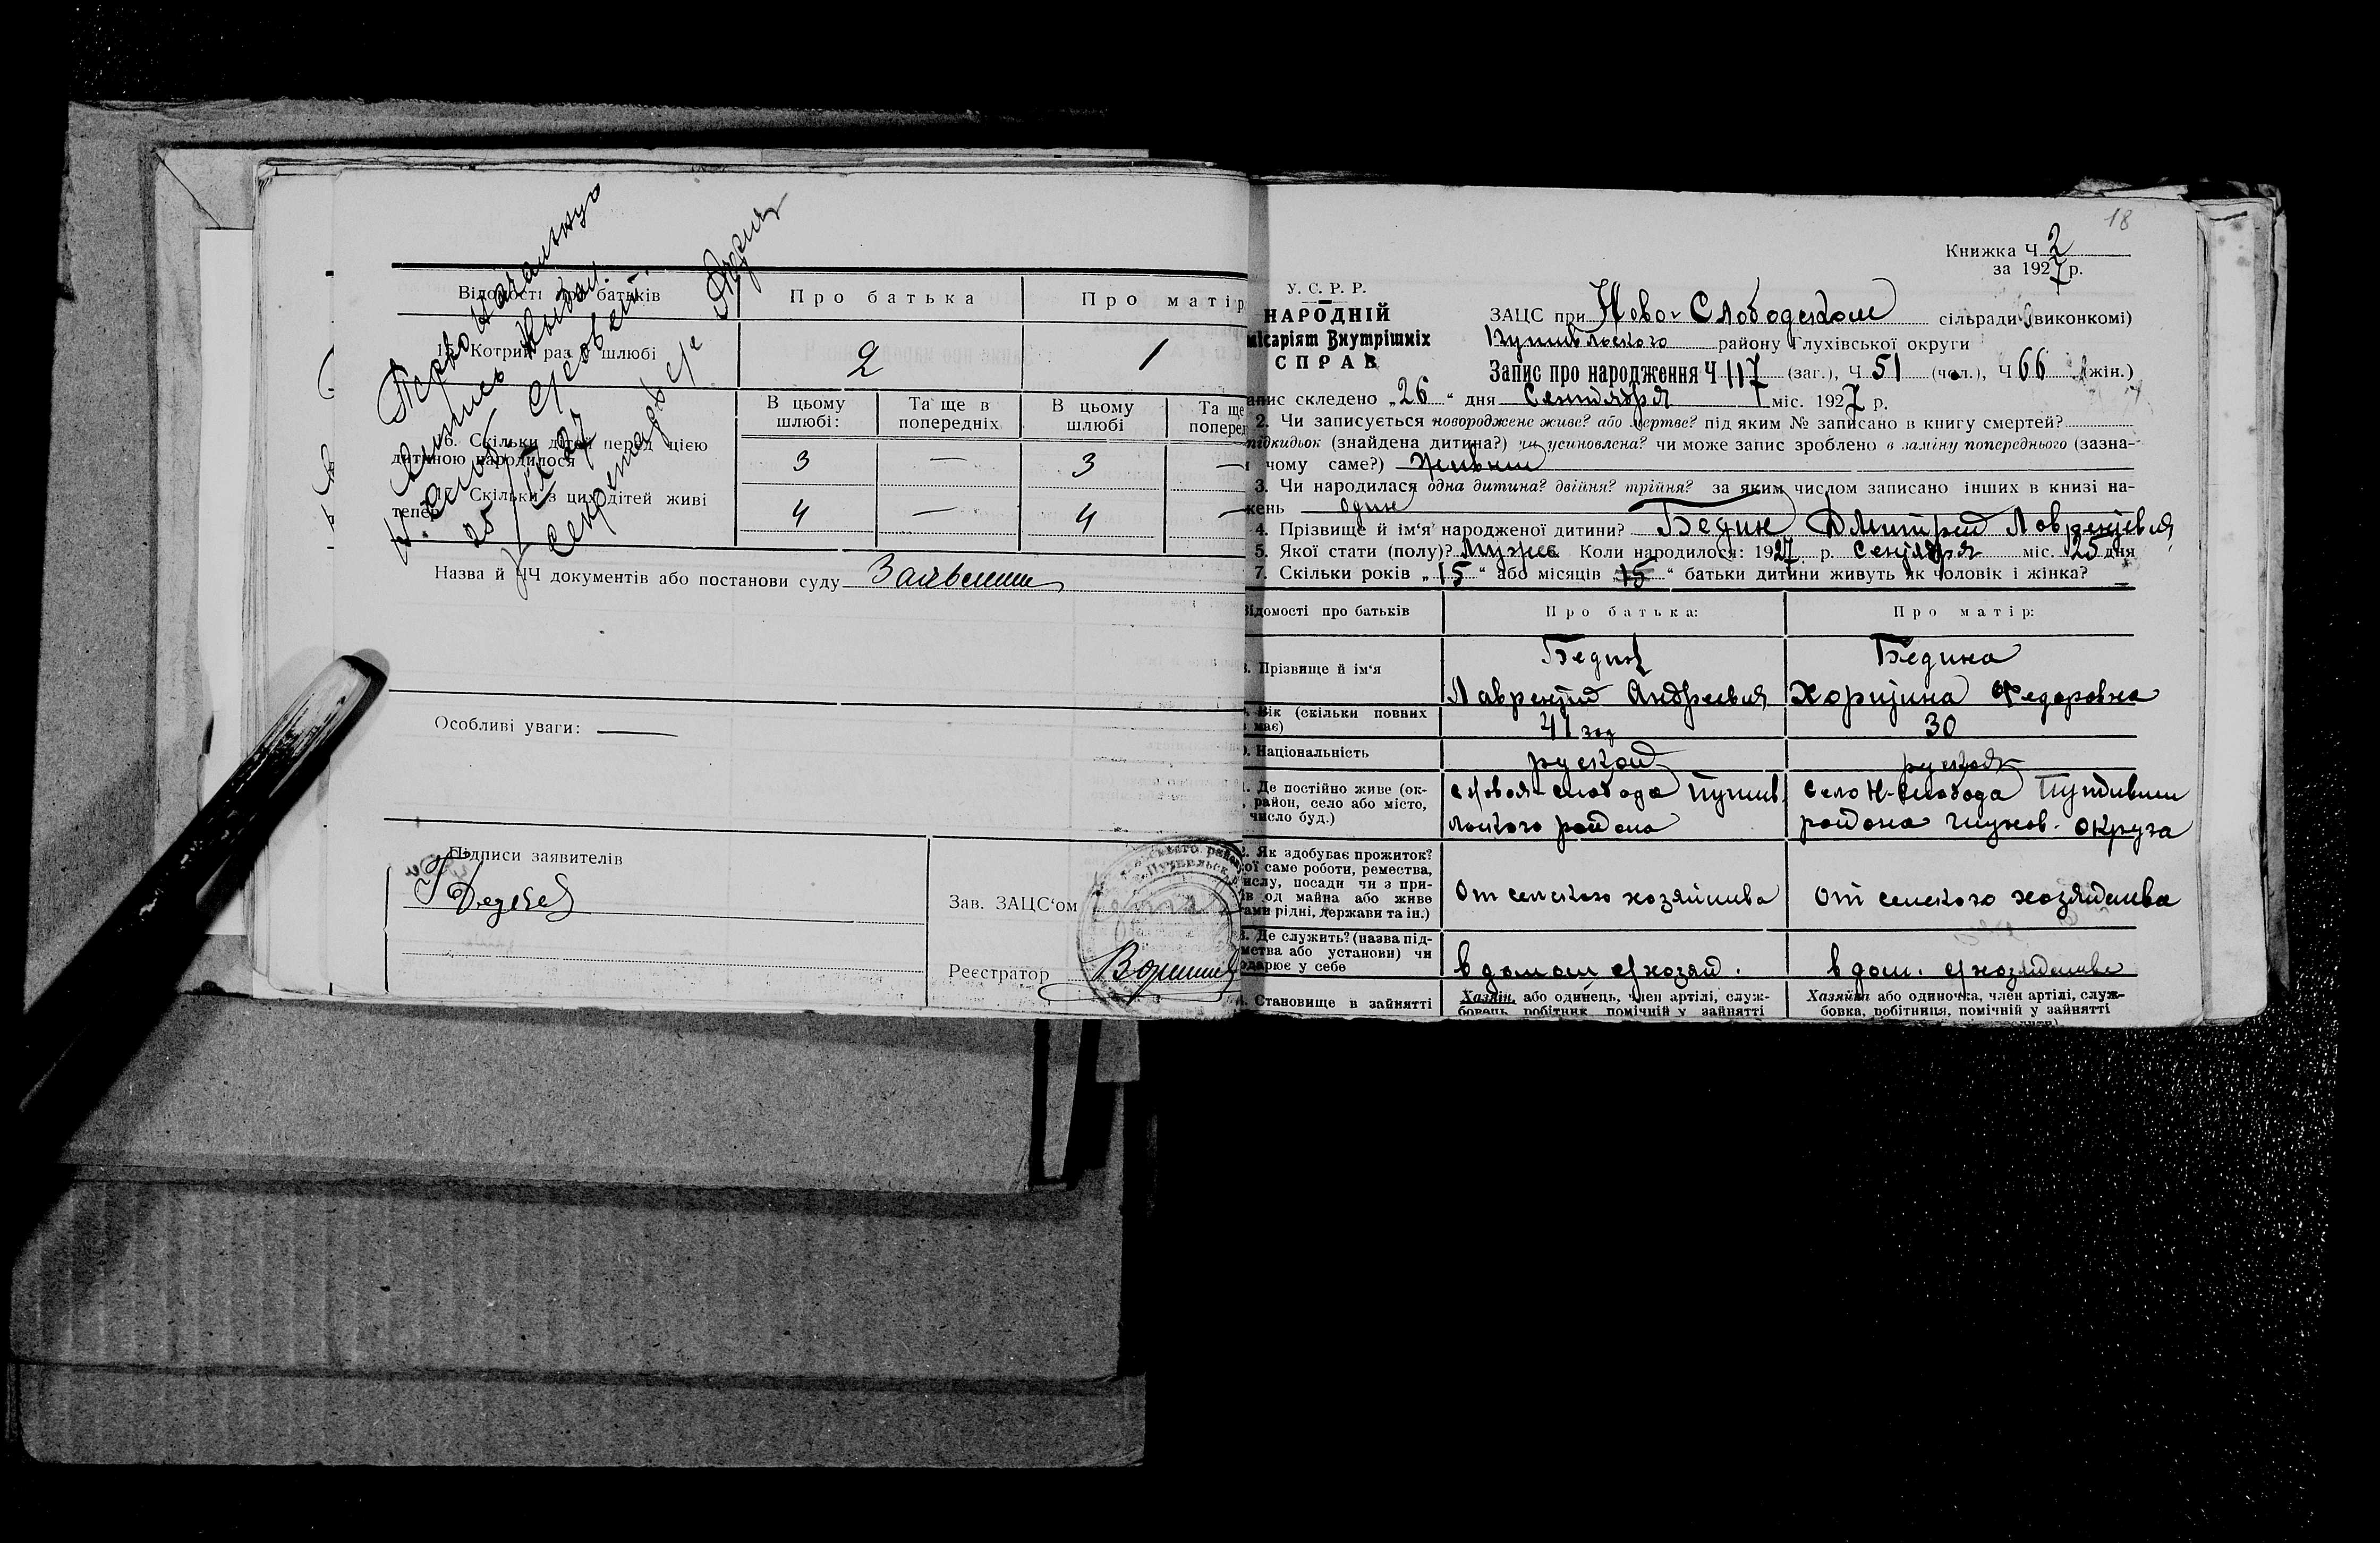 Відомості про батьків
Про батька
Про матір
15. Котрий раз у шлюбі
2
1
В цьому шлюбі:
Та ще в попередніх
В цьому шлюбі
Та ще поперед
16. Скільки дітей перед цією
дитиною народилося
3
—
3
—
Скільки з цих дітей живі
тепер
4
—
4
—
Назва й ЧЧ документів або постанови суду
Особливі уваги: —
Підписи заявителів
Зав. ЗАЦС‘ом
Реєстратор
18
Книжка Ч. 2
за 1927 р.
У. С. Р. Р.
НАРОДНІЙ
місаріят Внутрішніх
СПРАВ
ЗАЦС при Ново-Слободском сільради (виконкомі)
Путивльского району Глухівської округи
Запис про народження Ч 117 (заг.), Ч 51 (чол.), Ч 66 (жін.)
апис складено „26“ дня Сентября міс. 1927 р.
2. Чи записується новороджене живе? або мертве? під яким № записано в книгу смертей?
підкидьок (знайдена дитина?) чи усиновлена? чи може запис зроблено в заміну попереднього (зазна-
чому саме?) живым
3. Чи народилася одна дитина? двійня? трійня? за яким числом записано інших в книзі на-
жень один
4. Прізвище й ім‘я народженої дитини? Бедин Дмитрий Лаврентьевич
5. Якої стати (полу)? Мужс. Коли народилося: 1927 р. Сентября міс. 25 дня
7. Скільки років „15“ або місяців „15“ батьки дитини живуть як чоловік і жінка? —
Відомості про батьків
Про батька:
Про матір:
Прізвище й ім‘я
Бедин
Лаврентий Андреевич
Бедина
Харитина Федоровна
Вік (скільки повних
має)
41 год
30
Національність
руской
руская
Де постійно живе (ок-
район, село або місто,
число буд.)
с Новая-слобода Путив
льского района
село Н-слобода Путивльш
района глухов. округа
Як здобуває прожиток?
ої саме роботи, ремества,
ислу, посади чи з при-
ів од майна або живе
ами рідні, держави та ін.)
От сельского хозяйства
От сельского хозяйства
Де служить? (назва під-
мства або установи) чи
одарює у себе
в домаш с/хозяй.
в дом. с/хозяйстве
Становище в зайнятті
Хазяїн, або одинець, член артілі, служ-
бовець, робітник, помічній у зайнятті
Хазяйка або одиночка, член артілі, служ-
бовка, робітниця, помічній у зайнятті